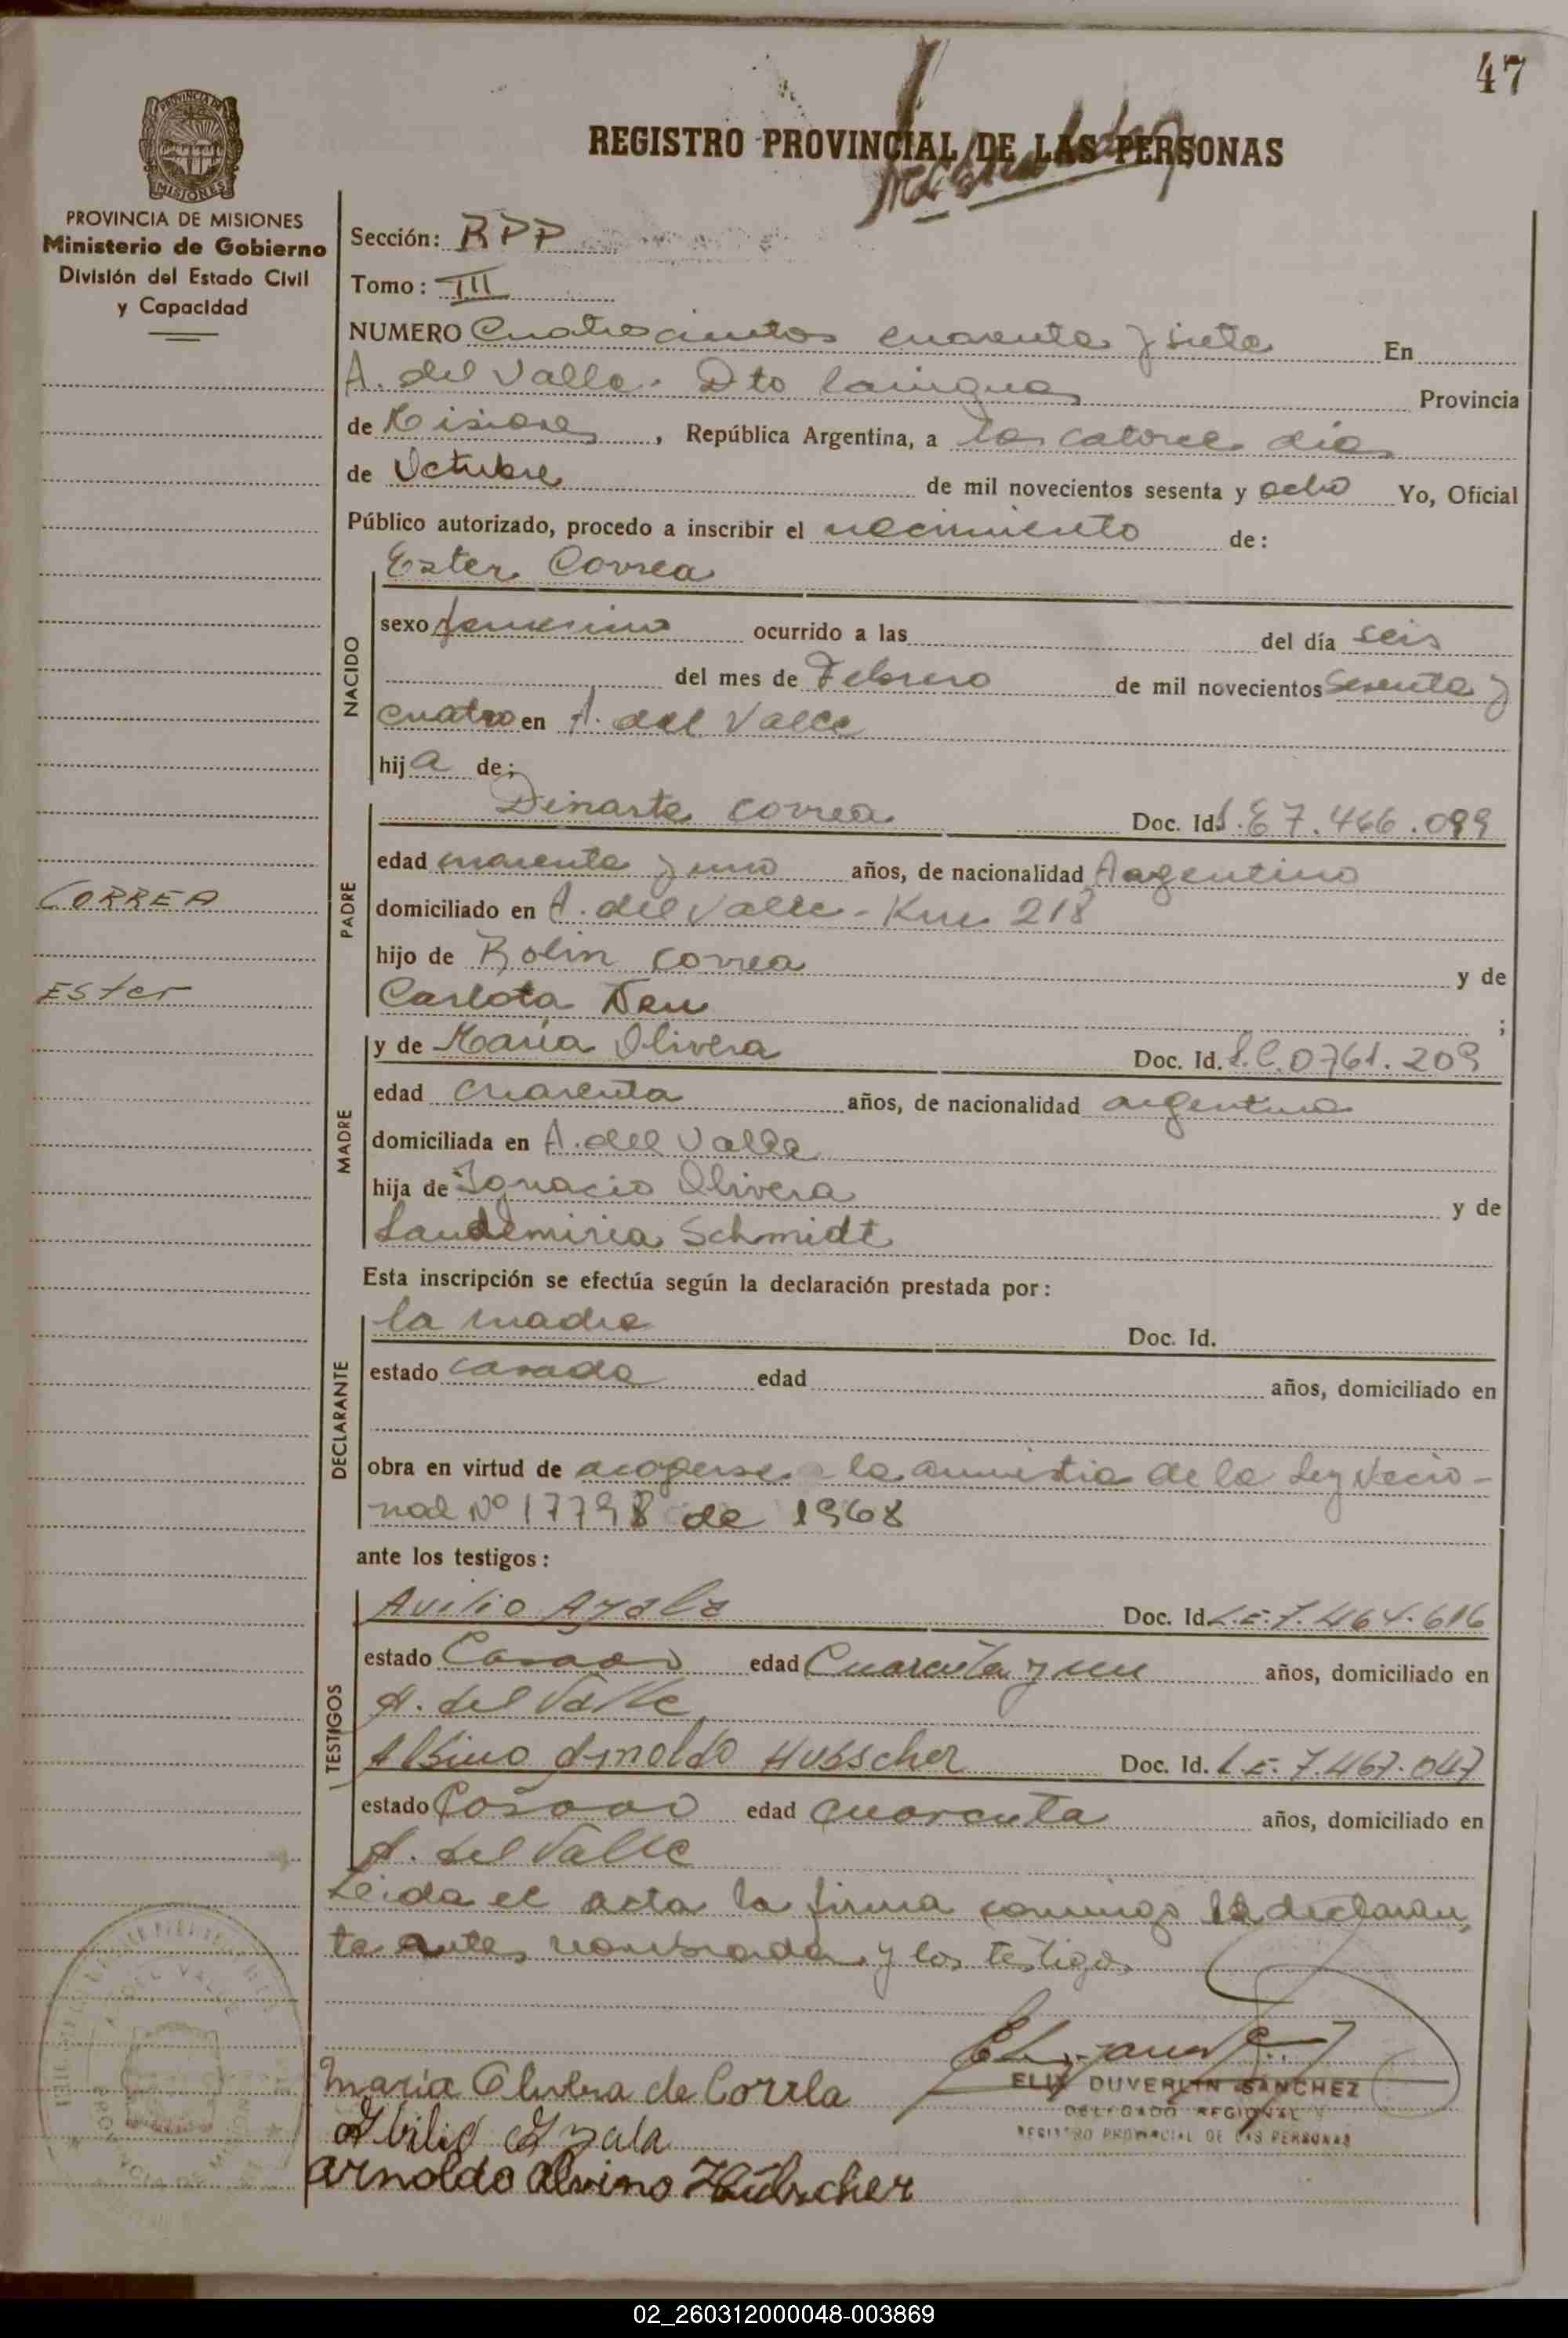 47
PROVINCIA DE
MISIONES
REGISTRO PROVINCIAL DE LAS PERSONAS
PROVINCIA DE MISIONES
Ministerio de Gobierno
División del Estado Civil
y Capacidad
Sección: RPP
Tomo: III
NUMERO Cuatrocientos cuarenta y siete En
A. del Valle. Dto Cainguas Provincia
de Misiones, República Argentina, a los catorce dias
de Octubre de mil novecientos sesenta y ocho Yo, Oficial
Público autorizado, procedo a inscribir el nacimiento de:
NACIDO
Ester Correa
sexo femenino ocurrido a las del día seis
del mes de Febrero de mil novecientos sesenta y
cuatro en A. del Valle
hija de;
PADRE
Dinarte Correa Doc. Id. L.E 7.466.099
edad cuarenta y uno años, de nacionalidad Argentino
domiciliado en A. del Valle - Km 218
hijo de Rolin Correa y de
Carlota ;
CORREA
Ester
MADRE
y de María Olivera Doc. Id. L.C. 0761.209
edad cuarenta años, de nacionalidad argentina
domiciliada en A. del Valle
hija de Ignacio Olivera y de
Laudemiria Schmidt
Esta inscripción se efectúa según la declaración prestada por:
DECLARANTE
la madre Doc. Id.
estado casada edad años, domiciliado en
obra en virtud de acogerse a la amnistia de la Ley Nacio-
nal Nº 17798 de 1968
ante los testigos:
TESTIGOS
Avilio Ayala Doc. Id. L.E. 7.464.616
estado Casado edad Cuarenta y un años, domiciliado en
A. del Valle
Albino Arnoldo Hubscher Doc. Id. L.E. 7.467.047
estado Casado edad cuarenta años, domiciliado en
A. del Valle
Leida el acta la firma conmigo la declaran
te antes nombrada y los testigos
ELIX DUVERLIN SANCHEZ
DELEGADO REGIONAL
REGISTRO PROVINCIAL DE LAS PERSONAS
Maria Olivera de Correa
Abilio Ayala
Arnoldo Alvino Hübscher
02_260312000048-003869